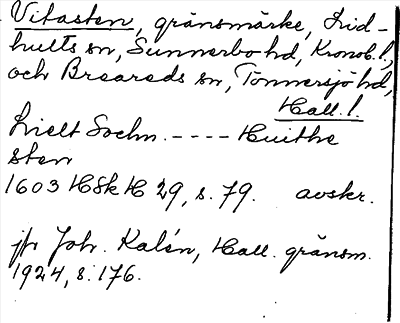 Vitasten, gränsmärke, Lid-
hults sn, Sunnerbo hd, Kronob. l.,
och Breareds sn, Tönnersjö hd,
Hall. l.
Lielt Sochn. - - - - Huithe
sten
1603 HSkH 29, s. 79. avskr.
jfr Joh. Kalén, Hall. gränsm.
1924, s. 176.